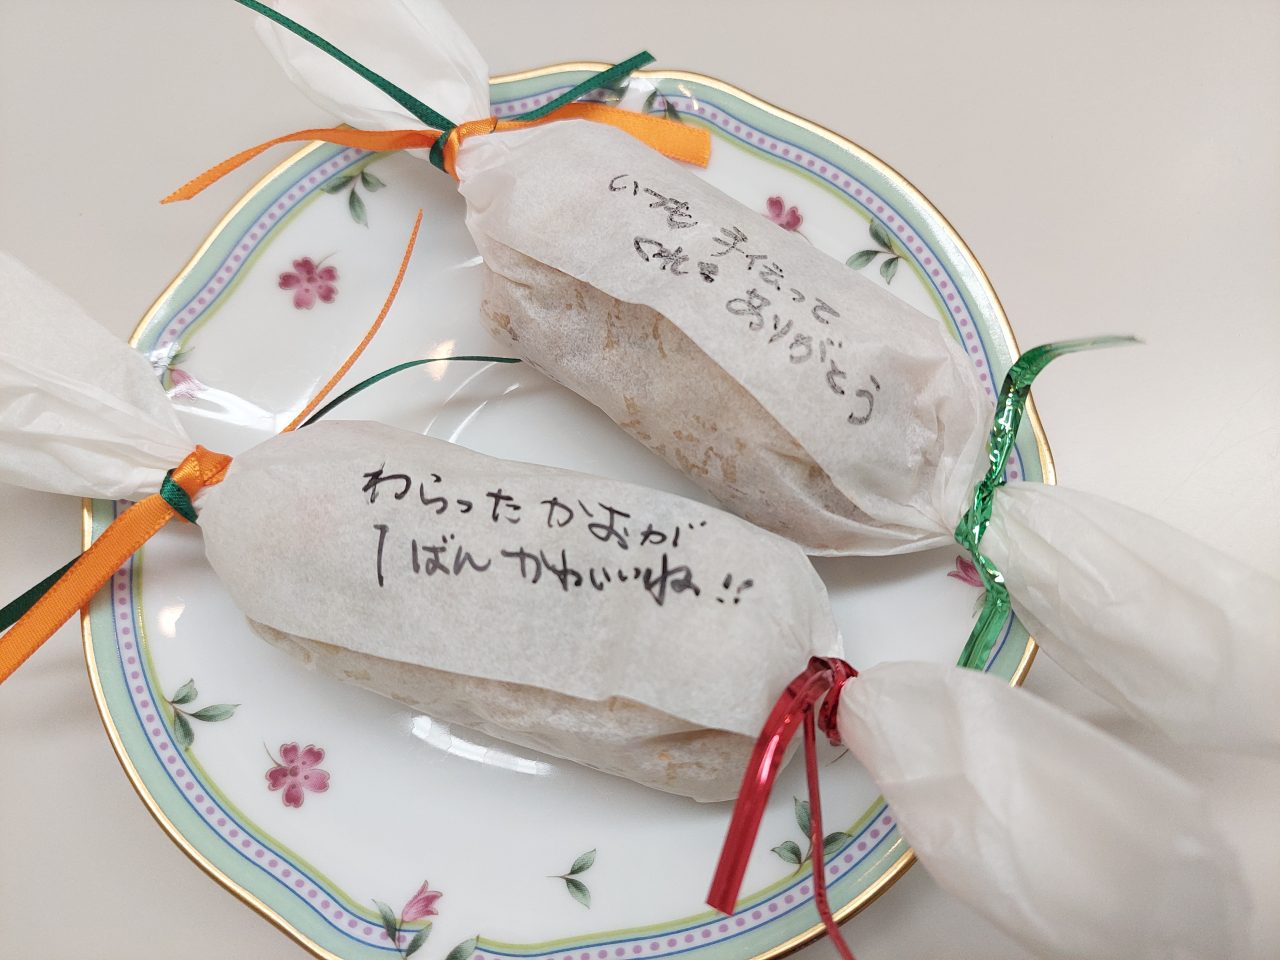 いつも手伝って
くれて
ありがとう
わらったかおが
1ばんかわいいね!!